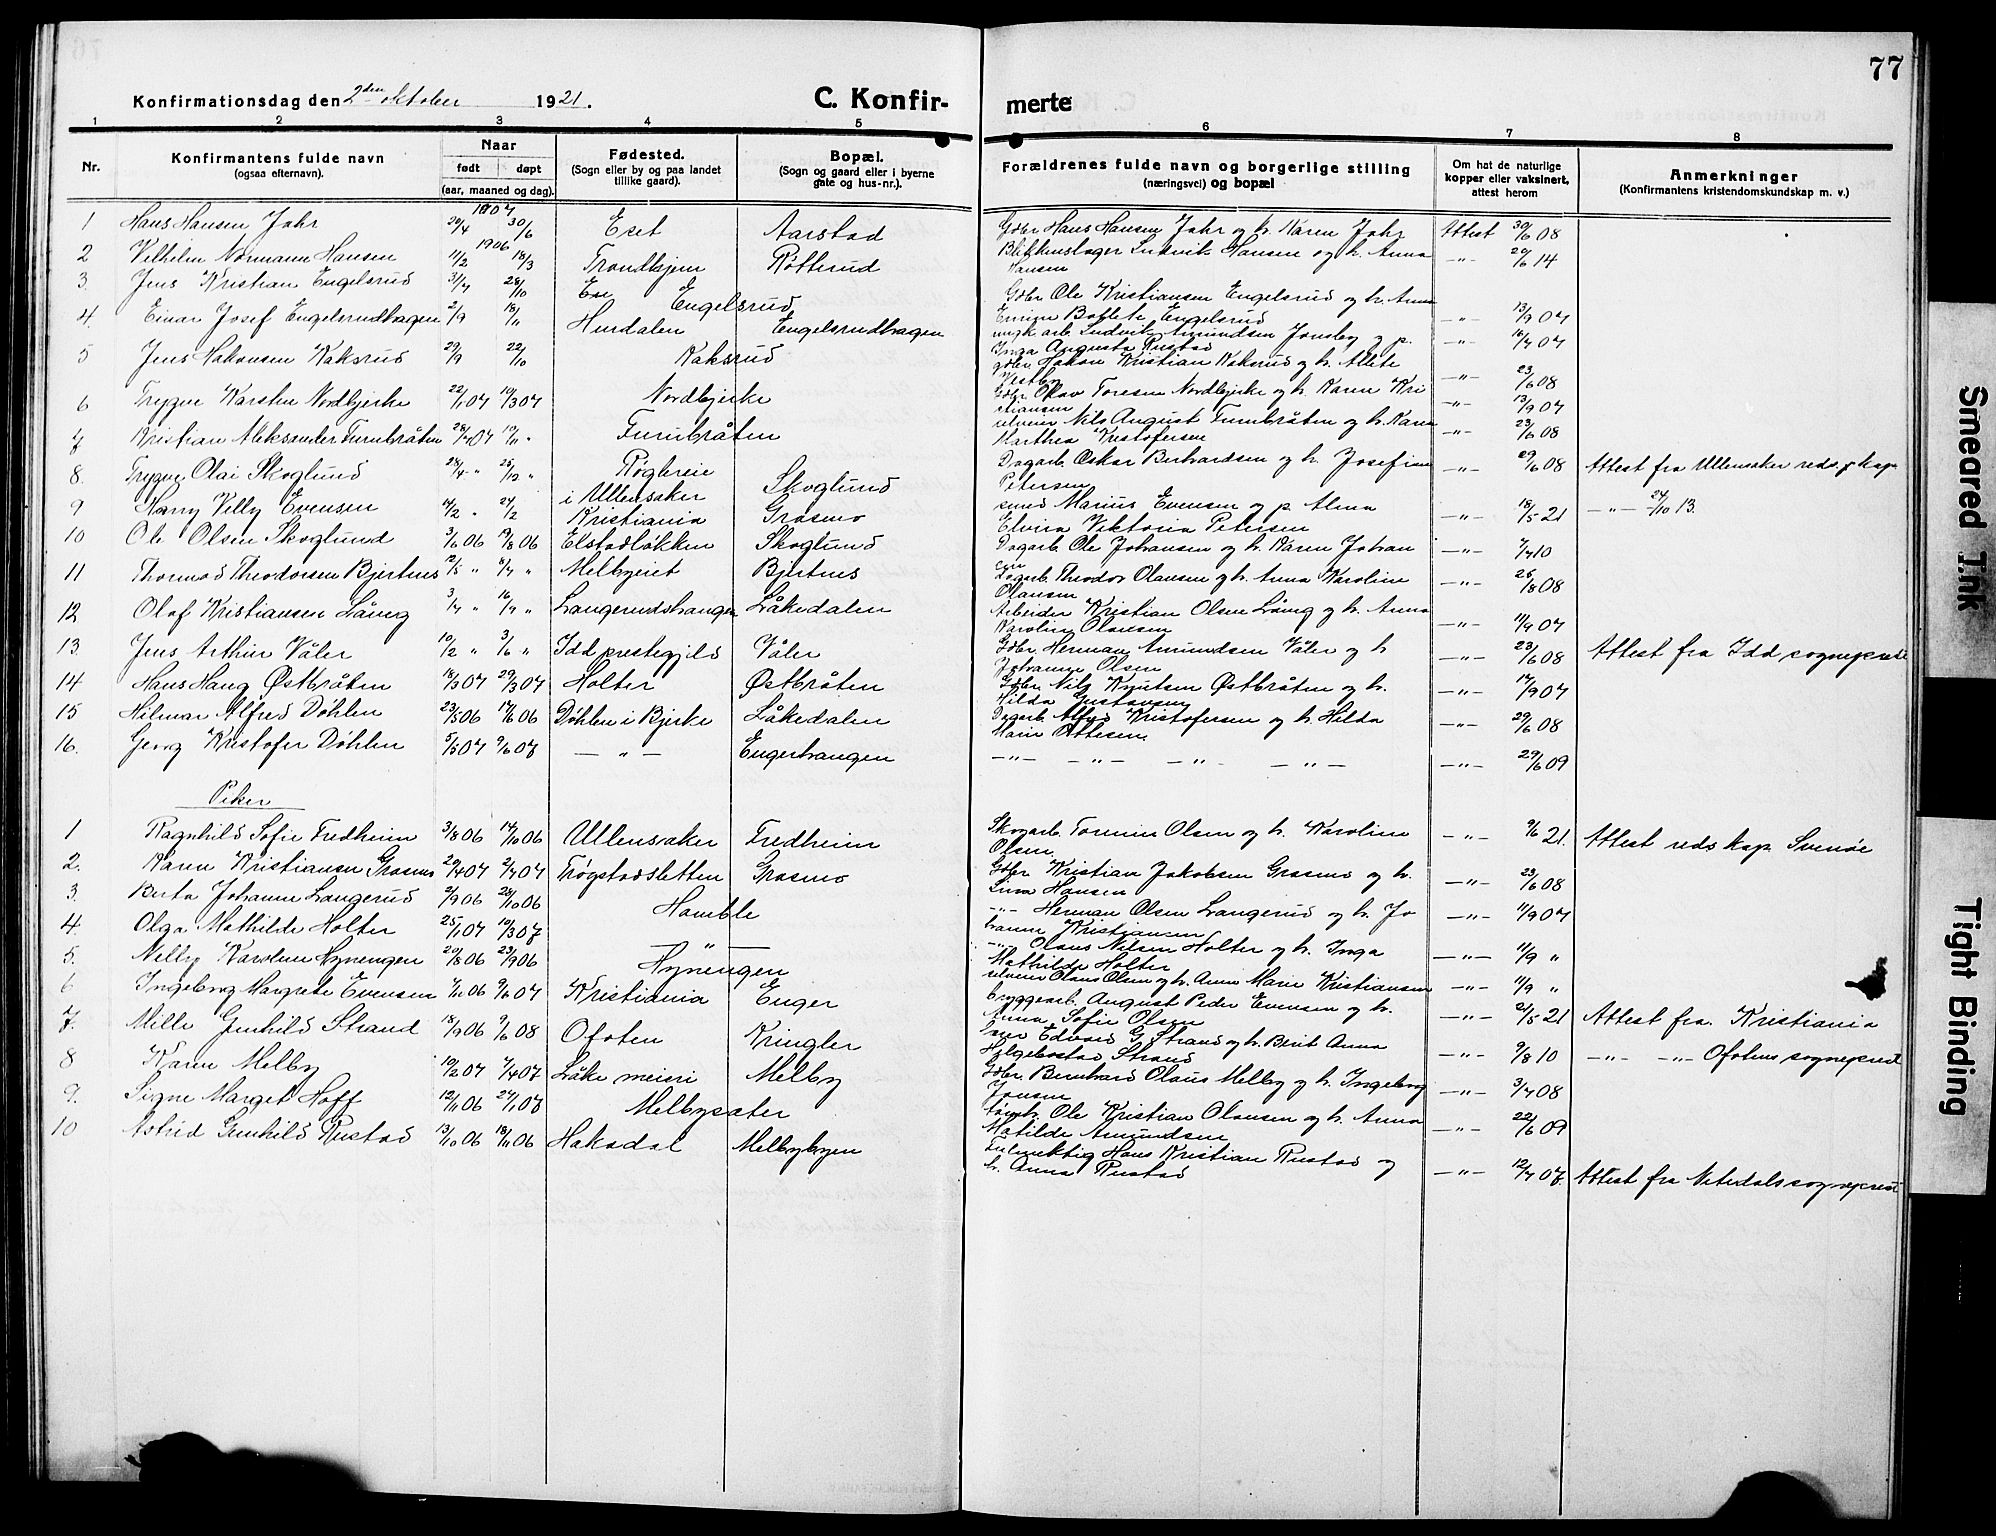 77
Konfirmationsdag den 2den oktober 1921.
C. Konfir-
merte
1 2 3 4 5 6 7 8
Nr.
Konfirmantens fulde navn
(ogsaa efternavn).
Naar
født døpt
(aar, maaned og dag).
Fødested.
(Sogn eller by og paa landet
tillike gaard).
Bopæl.
(Sogn og gaard eller i byerne
gate og hus-nr.).
Forældrenes fulde navn og borgerlige stilling
(næringsvei) og bopæl
Om hat de naturlige
kopper eller vaksinert,
attest herom
Anmerkninger
(Konfirmantens kristendomskundskap m. v.)
1907
1 Hans Hansen Jahr 20/4 30/6 Aarstad Gdbr Hans Hansen Jahr og h. Karen Jahr Attest 30/6 08
1906
2 Vilhelm Normann Hansen 11/2 18/3 Trondhjem Røtterud Blikkenslager Ludvik Hansen og h. Anna
Hansen -"- 20/6 14
3. Jens Kristian Engelsrud 31/7 28/10 Engelsrud Gdbr Ole Kristiansen Engelsrud og h. Anna
Engelsrud -"- 13/9 07
4. Einar Josef Engelsrudhagen 2/9 18/11 Hurdalen Engelsrudhagen ungk arb. Ludvik Amundsen Jonsby og p.
Inga Augusta Rustad -"- 16/7 07
5 Jens Hakonsen Kaksrud 29/9 22/10 Kaksrud gdbr. Håkon Kristian Kaksrud og h. Allete
Vestby -"- 23/6 08
6 Trygve Karsten Nordbjerke 22/1 07 10/3 07 Nordbjerke Gdbr Olav Toresen Nordbjerke og h. Karen Kri
stiansen -"- 13/9 07
7 Kristian Aleksander Furubråten 28/7 07 10/11 " Furubråten Nils August Furubråten og h. Karen
Marthea Kristofersen -"- 23/6 08
8. Trygve Olai Skoglund 24/4 " 25/12 " Røgleeie
i Ullensaker Skoglund Dagarb. Oskar Berhardsen og h. Josefine
Petersen -"- 29/6 08 Attest fra Ullensaker reds. p. kap
9 Harry Villy Evensen 14/2 " 24/2 Kristiania Grasmo smed Marius Evensen og p. Alma
Elvira Viktoria Petersen -"- 18/5 21 -"- 24/10 13.
10 Ole Olsen Skoglund 3/6 06 19/8 06 Elstadløkken Skoglund Dagarb. Ole Johansen og h. Karen Johan
-"- 7/7 10
11 Thormod Theodorsen Bjertnes 12/5 " 8/7 " Melbyeiet Bjertnes Dagarb. Theodor Olausen og h. Anna Karoline
Olausen -"- 26/8 08
12 Olaf Kristiansen Låing 3/7 " 16/9 " Langerudshaugen Låkedalen Arbeider Kristian Olsen Låing og h. Anna
Karoline Olausen -"- 11/9 07
13. Jens Arthur Våler 10/2 " 3/6 " Idd prestegjeld Våler Gdbr. Herman Amundsen Våler og h
Johanne Olsen -"- 23/6 08 Attest fra Idd sogneprest
14 Hans Haug Østbråten 18/3 07 29/3 07 Holter Østbråten Gdbr. Nils Knutsen Østbråten og h.
Hilda Gustavsen -"- 14/9 07
15 Hilmar Alfred Døhlen 23/5 06 17/6 06 Døhlen i Bjerke Låkedalen Dagarb. Alfred Kristofersen og h. Hilda
Marie Ottesen. -"- 29/6 08
16. Georg Kristofer Døhlen 5/5 07 9/6 07 -"- Engerhaugen -"- -"- -"- -"- -"- 29/6 09
Piker
1 Ragnhild Sofie Fredheim 3/8 06 14/10 06 Ullensaker Fredheim Skogarb. Tormin Olsen og h. Karoline
Olsen -"- 9/6 21. Attest reds kap. Svenøe
2. Karen Kristiansen Grasmo 20/4 07 2/7 07 Trøgstadsletten Grasmo Gdbr Kristian Jakobsen Grasmo og h.
Lina Hansen -"- 23/6 08
3. Berta Johanne Langerud 2/9 06 28/10 06 Hamble -"- Herman Olsen Langerud og h. Jo
hanne Kristiansen -"- 11/9 07
4. Olga Mathilde Holter 25/1 07 10/3 07 -"- -"- Olaus Nilsen Holter og h. Inga
Mathilde Holter -"- 11/9 "
5. Nelly Karoline Hynengen 20/8 06 23/9 06 Hynengen Olaus Olsen og h. Anne Marie Kristiansen -"- 11/9 "
6 Ingeborg Margrete Evensen 7/11 06 9/6 07 Kristiania Enger bryggearb. August Peder Evensen og h.
Anna Sofie Olsen -"- 21/5 21 Attest fra Kristiania
7. Mille Gunhild Strand 18/9 06 9/6 08 Ofoten Kringler Edvard G. Strand og h. Berit Anna
Helgebostad Strand -"- 9/8 10 -"- -"- Ofotens sogneprest
8 Karen Melby 19/2 07 7/4 07 Låke meieri Melby Gdbr. Bernhard Olaus Melby og h. Ingeborg
Jonsen -"- 3/7 08
9. Signe Marget Hoff 12/11 06 27/1 07 Melbysæter Ole Kristian Olausen og h. Anna
Matilde Amundsen -"- 22/6 09
10 Astrid Gunhild Rustad 13/10 06 18/11 06 Hakadal Melbybyen Fulmektig Hans Kristian Rustad og
h. Anna Rustad -"- 12/7 07. Attest fra Nitedals sogneprest
Smeared Ink
Tight Binding